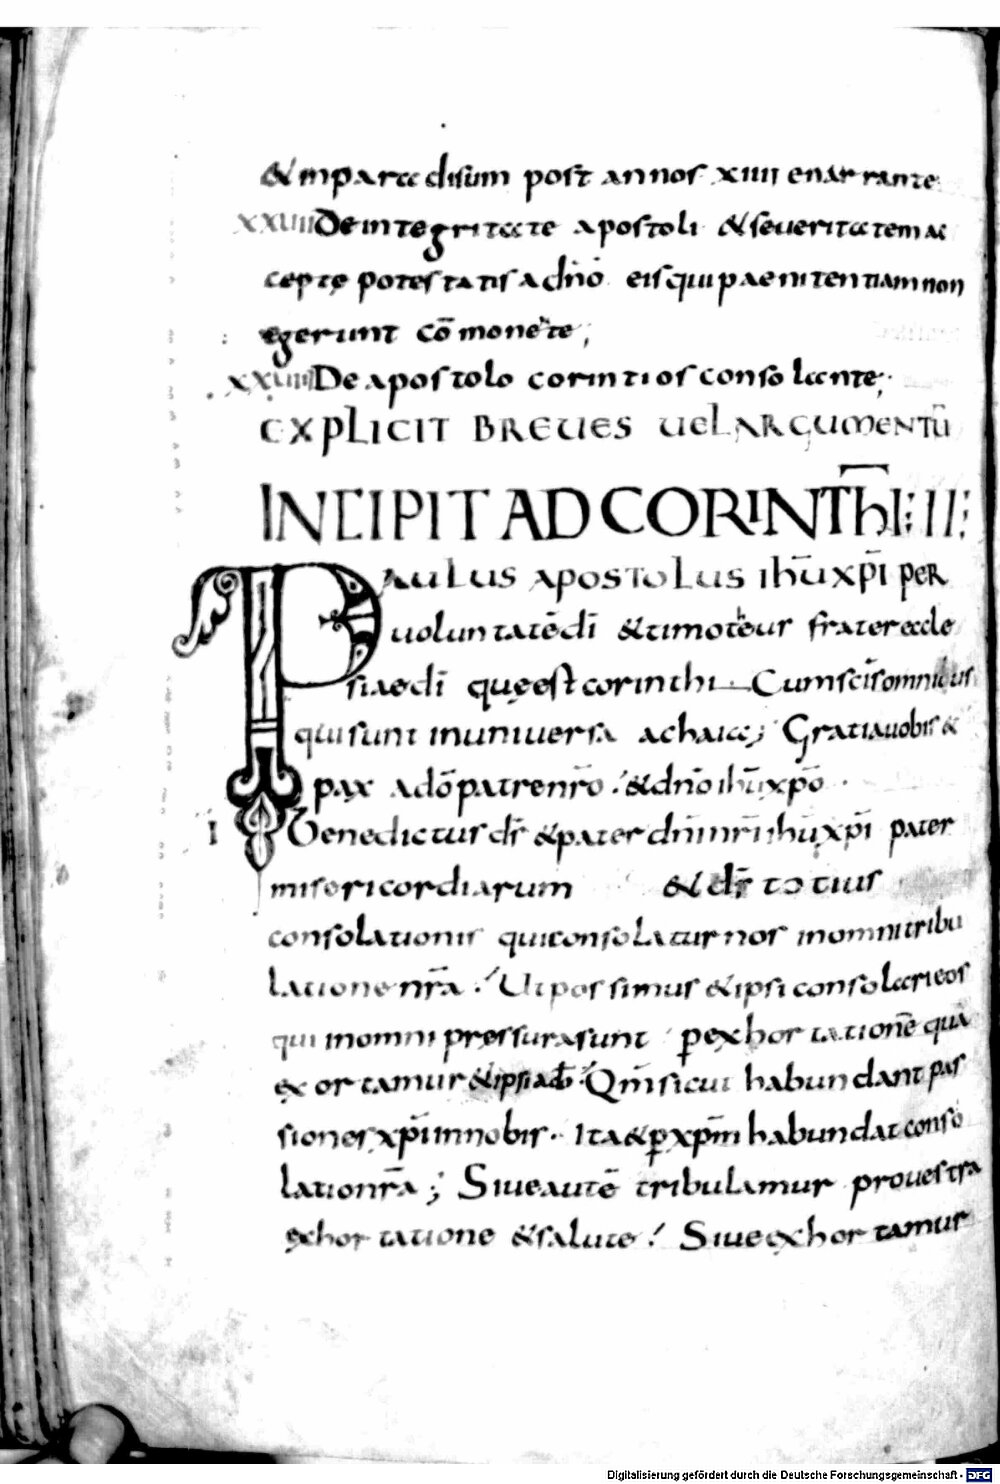 & in paradisum post annos xiiii enarrante
XXVIII De integritate apostoli & severitatem ac
cepte potestatis a dño eis qui paenitentiam non
egerunt cõmonente;
XXVIIII De apostolo corintios consolante;
EXPLICIT BREUES UEL ARGUMENTŪ
INCIPIT AD CORINTH̄I: II:
PAULUS APOSTOLUS ihū xp̄i PER
uoluntatē dī & timotheus frater eccle
siae dī quę est corinthi Cum scīs omnibus
qui sunt in uniuersa achaia; Gratia uobis &
pax a dō patre nr̄o & dn̄o ihū xp̄o
I Benedictus ds̄ & pater dn̄i nr̄i ihū xp̄i pater
misericordiarum & ds̄ totius
consolationis qui consolatur nos in omni tribu
latione nr̄a. Ut possimus & ipsi consolari eos
qui in omni pressura sunt p exhortationē qua
exortamur & ipsi a dō. Qm̄ sicut habundant pas
siones xp̄i in nobis. Ita & p xp̄m habundat conso
latio nr̄a; Siue autē tribulamur pro uestra
exhortatione & salute! Siue exhortamur
Digitalisierung gefördert durch die Deutsche Forschungsgemeinschaft - DFG